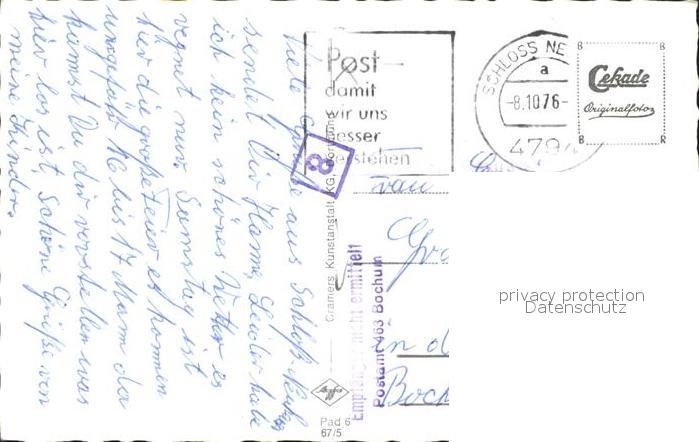 Viele Grüße aus Schloß Neuh
sendet Dir Hanne Leider habe
ich kein schönes Wetter es
regnet nur. Samstag ist
hier die große Feier es kommen
ungefähr 16 bis 17 Mann da
kannst Du dir vorstellen was
hier los ist Schöne Grüße von
meine Kinder.
Post
damit
wir uns
besser
verstehen
SCHLOSS NE
a
-8.10.76-
479
Cekade
Originalfotos
B
B
B
R
8
Cramers Kunstanstalt KG, Dortmund
Pad 6
67/5
Empfänger nicht ermittelt
Postamt 463 Bochum
rau
in d
Boch
privacy protection
Datenschutz